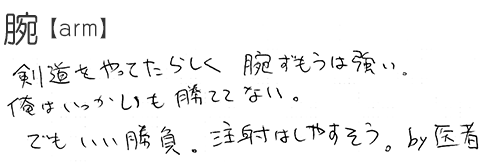 腕【arm】
剣道をやってたらしく 腕ずもうは強い。
俺はいっかいも勝ててない。
でもいい勝負。注射はしやすそう。by医者